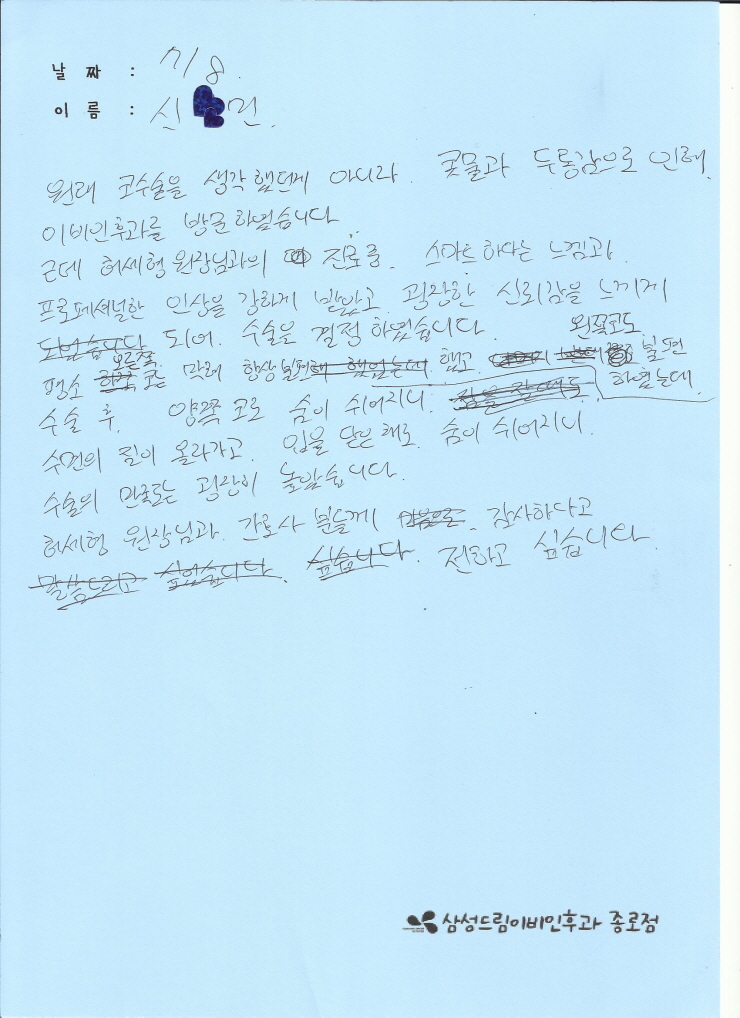 날 짜 : 7/8.
이 름 : 신 민.
원래 코수술을 생각했던게 아니라. 콧물과 두통감으로 인해.
이비인후과를 방문하였습니다
근데 허세형 원장님과의 진료중. 스마트하다는 느낌과.
프로페셔널한 인상을 강하게 받았고 굉장한 신뢰감을 느끼게
되어. 수술을 결정하였습니다. 왼쪽코도
평소 오른쪽 코는 막혀 항상 불편 했고 불편
수술 후. 양쪽 코로 숨이 쉬어지니. 하였는데.
수면의 질이 올라가고. 입을 닫은 채로. 숨이 쉬어지니.
수술의 만족도는 굉장히 높았습니다.
허세형 원장님과. 간호사 분들께 감사하다고
전하고 싶습니다.
삼성드림이비인후과 종로점